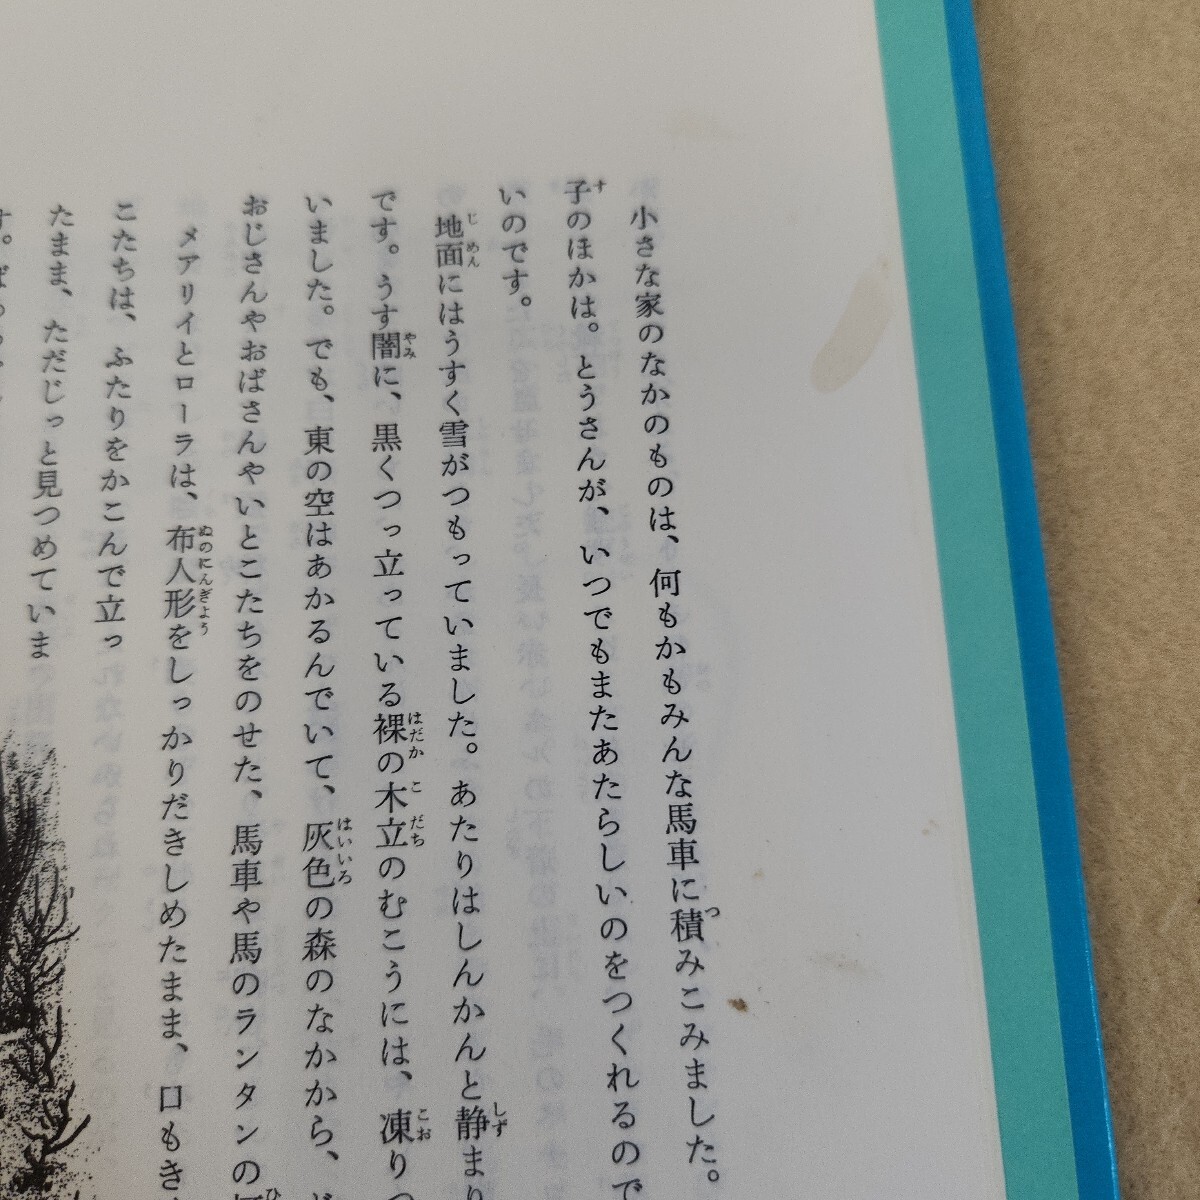 小さな家のなかのものは、何もかもみんな馬車に積みこみました。
子のほかは。とうさんが、いつでもまたあたらしいのをつくれるので
いのです。
地面にはうすく雪がつもっていました。あたりはしんかんと静まり
です。うす闇に、黒くつっ立っている裸の木立のむこうには、凍りつ
いました。でも、東の空はあかるんでいて、灰色の森のなかから、
おじさんやおばさんやいとこたちをのせた、馬車や馬のランタンの
メアリイとローラは、布人形をしっかりだきしめたまま、口もき
こたちは、ふたりをかこんで立っ
たまま、ただじっと見つめていま
す。